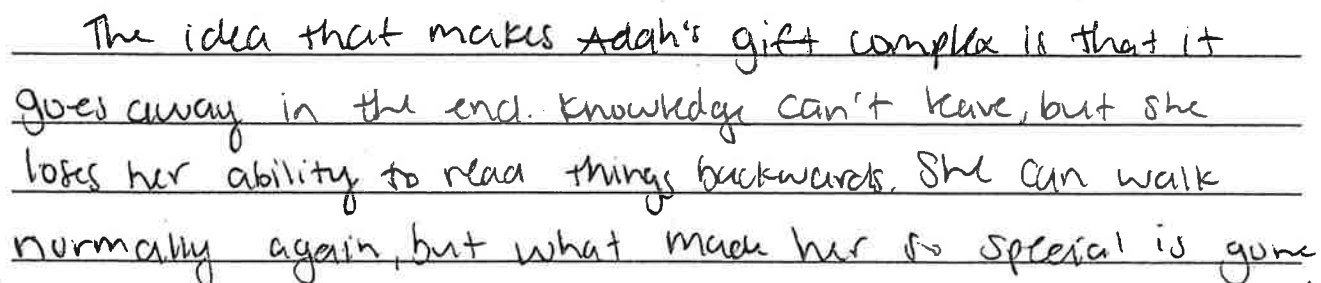 The idea that makes Adah's gift complex is that it
goes away in the end. Knowledge can't leave, but she
loses her ability to read things backwards. She can walk
normally again, but what made her so special is gone.